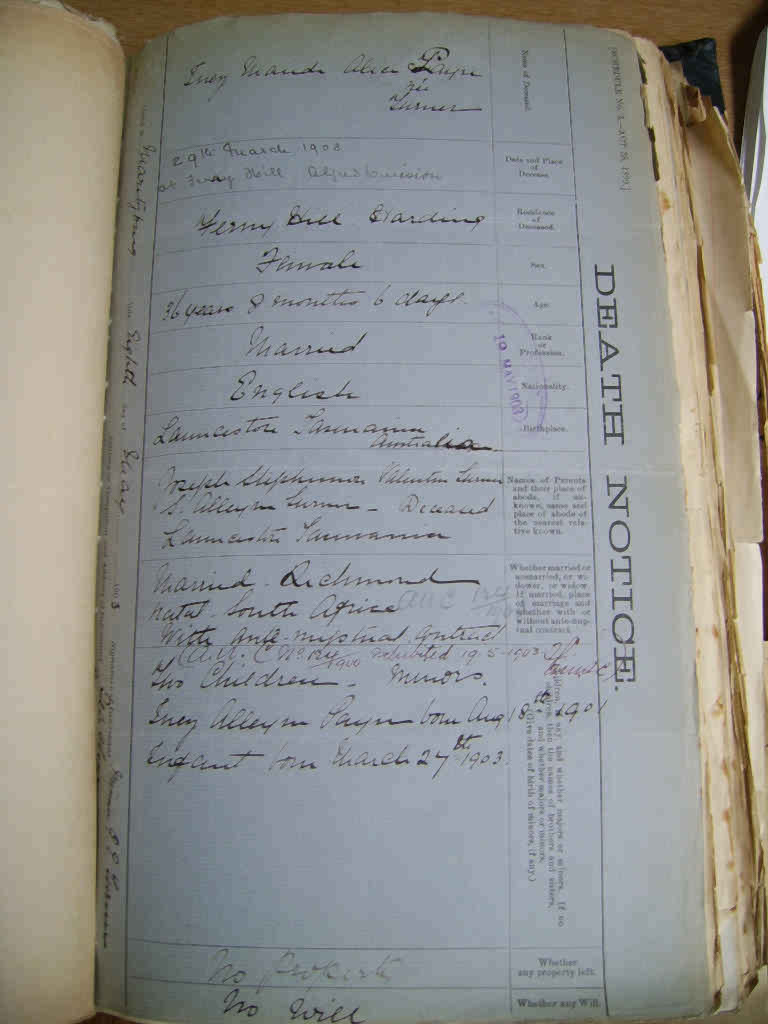 [SCHEDULE No. 1.—ACT 38, 1899.]
DEATH NOTICE.
Name of Deceased.
Lucy Maude Alice Payn
née
Turner
Date and Place of Decease.
29th March 1903
at Hill Division
Residence of Deceased.
Ferny Hill Harding
Sex.
Female
Age.
36 years 8 months 6 days.
Rank or Profession.
Married
Nationality.
English
19 MAY 1903
Birthplace.
Launceston Tasmania
Australia
Names of Parents and their place of abode, if unknown, name and place of abode of the nearest relative known.
Joseph Stephenson Valentine Turner
Alleyn Turner - Deceased
Launceston Tasmania
Whether married or unmarried, or widower, or widow, if married, place of marriage and whether with or without ante-nuptial contract.
Married - Richmond
Natal - South Africa
With Ante-nuptial Contract
(A.N.C. No. 124/1900 exhibited 19-5-1903
Children, if any, and whether majors or minors. If no children, then the names of brothers and sisters, and whether majors or minors. (Give dates of birth of minors, if any.)
Two Children - Minors.
Lucy Alleyn Payn born Aug 18th 1901
Infant born March 27th 1903.
Whether any property left.
No Property
Whether any Will.
No Will
Maritzburg
Eighth day of May 1903